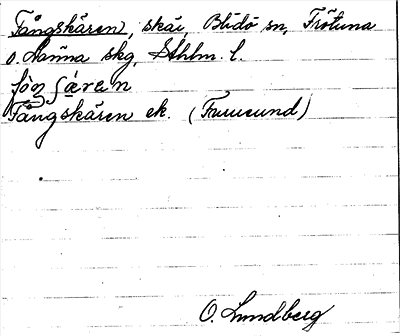 Tångskären, skär, Blidö sn, Frötuna
o. Länna skg, Sthlm. l.
Tångskären ek. (Furusund)
O. Lundberg